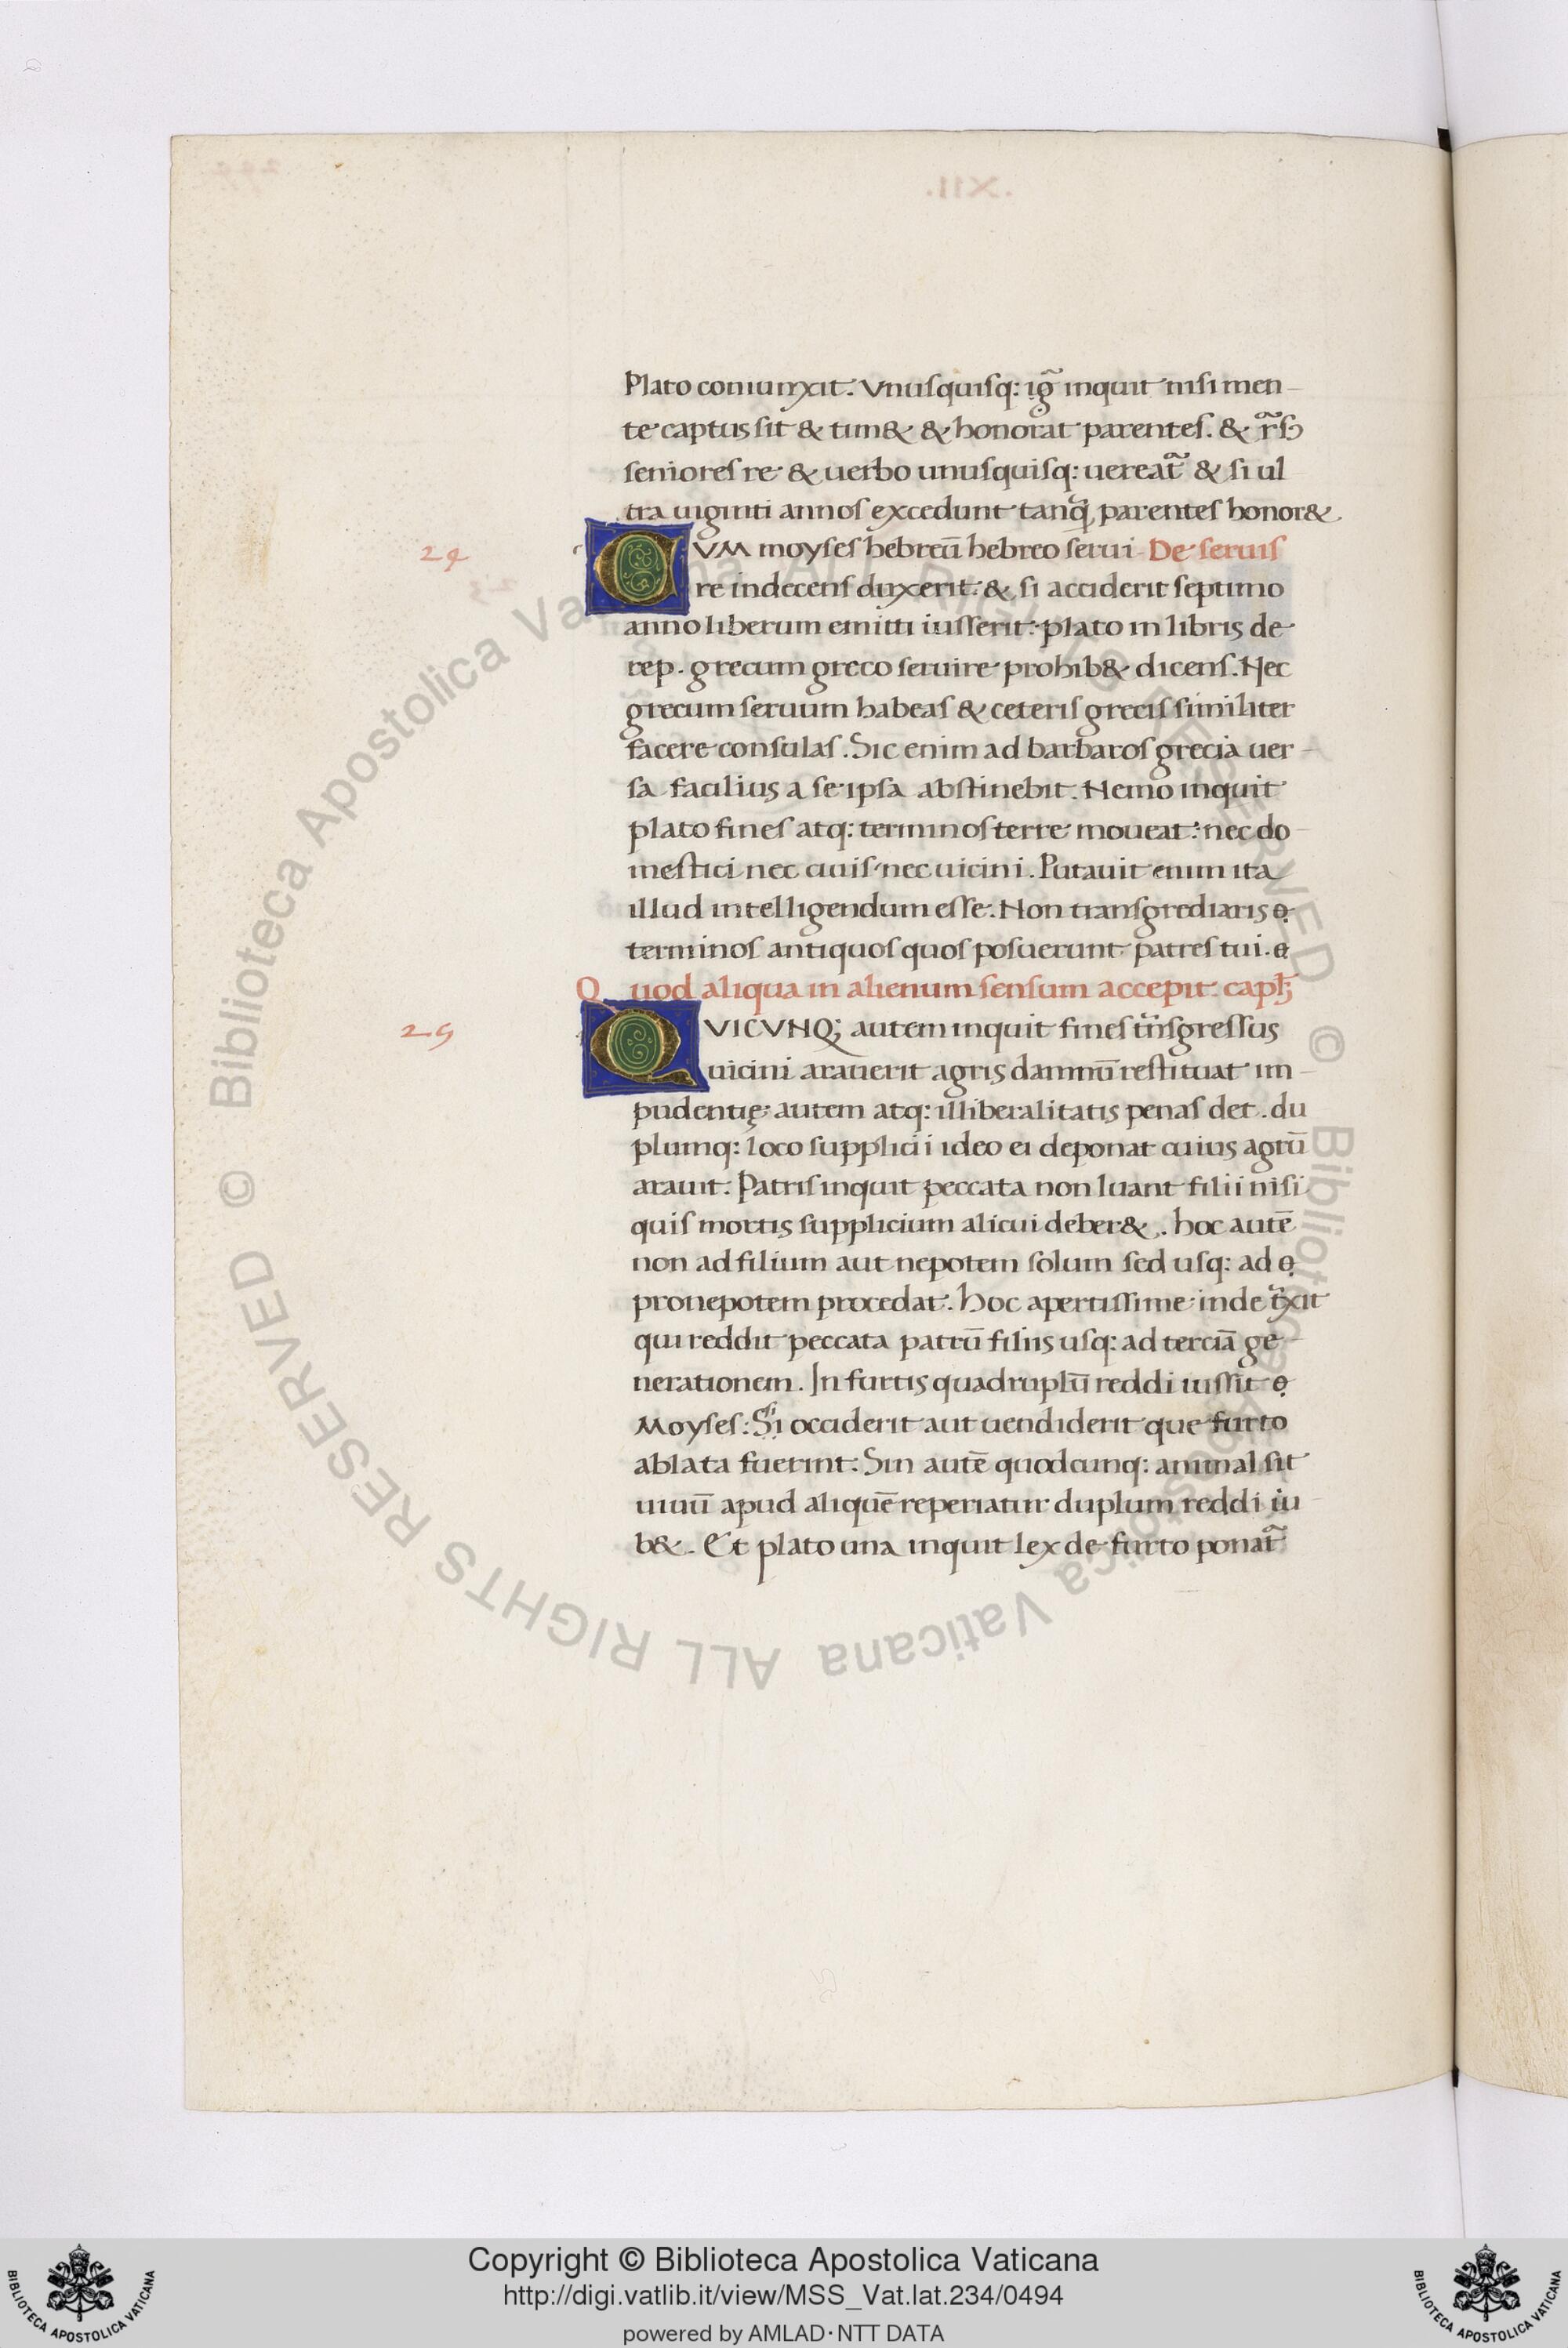 Plato coniunxit. Vnusquisq: ig̃ inquit nisi men-
te captus sit & tim& & honorat parentes. & r̃s
seniores re & uerbo unusquisq: uereat̃ & si ul
tra uiginti annos excedunt tanq̃ parentes honor&.
24 CVM moyses hebreū hebreo serui- De seruis
re indecens duxerit: & si acciderit septimo
anno liberum emitti iusserit: plato in libris de
rep. grecum greco seruire prohib& dicens. Nec
grecum seruum habeas & ceteris grecis similiter
facere consulas. Sic enim ad barbaros grecia uer-
sa facilius a se ipsa abstinebit. Nemo inquit
plato fines atq: terminos terre moueat: nec do-
mestici nec ciuis nec uicini. Putauit enim ita
illud intelligendum esse. Non transgrediaris ọ
terminos antiquos quos posuerunt patres tui. ọ
Quod aliqua in alienum sensum accepit capł
25 QVICVNQ; autem inquit fines tr̃nsgressus
uicini arauerit agris damnū restituat im-
pudentię autem atq: illiberalitatis penas det. du
plumq: loco supplicii ideo ei deponat cuius agrū
arauit. Patris inquit peccata non luant filii nisi
quis mortis supplicium alicui deber&. hoc autē
non ad filium aut nepotem solum sed usq: ad ọ
pronepotem procedat. Hoc apertissime inde t̃xit
qui reddit peccata patrū filiis usq: ad terciā ge-
nerationem. In furtis quadruplū reddi iussit ọ
Moyses: Si occiderit aut uendiderit que furto
ablata fuerint: Sin autē quodcunq: animal sit
uiuū apud aliquē reperiatur duplum reddi iu-
b&. Et plato una inquit lex de furto ponat̃
.XII.
© Biblioteca Apostolica Vaticana ALL RIGHTS RESERVED © Biblioteca Apostolica Vaticana ALL RIGHTS RESERVED
BIBLIOTECA APOSTOLICA VATICANA
Copyright © Biblioteca Apostolica Vaticana
http://digi.vatlib.it/view/MSS_Vat.lat.234/0494
powered by AMLAD·NTT DATA
BIBLIOTECA APOSTOLICA VATICANA